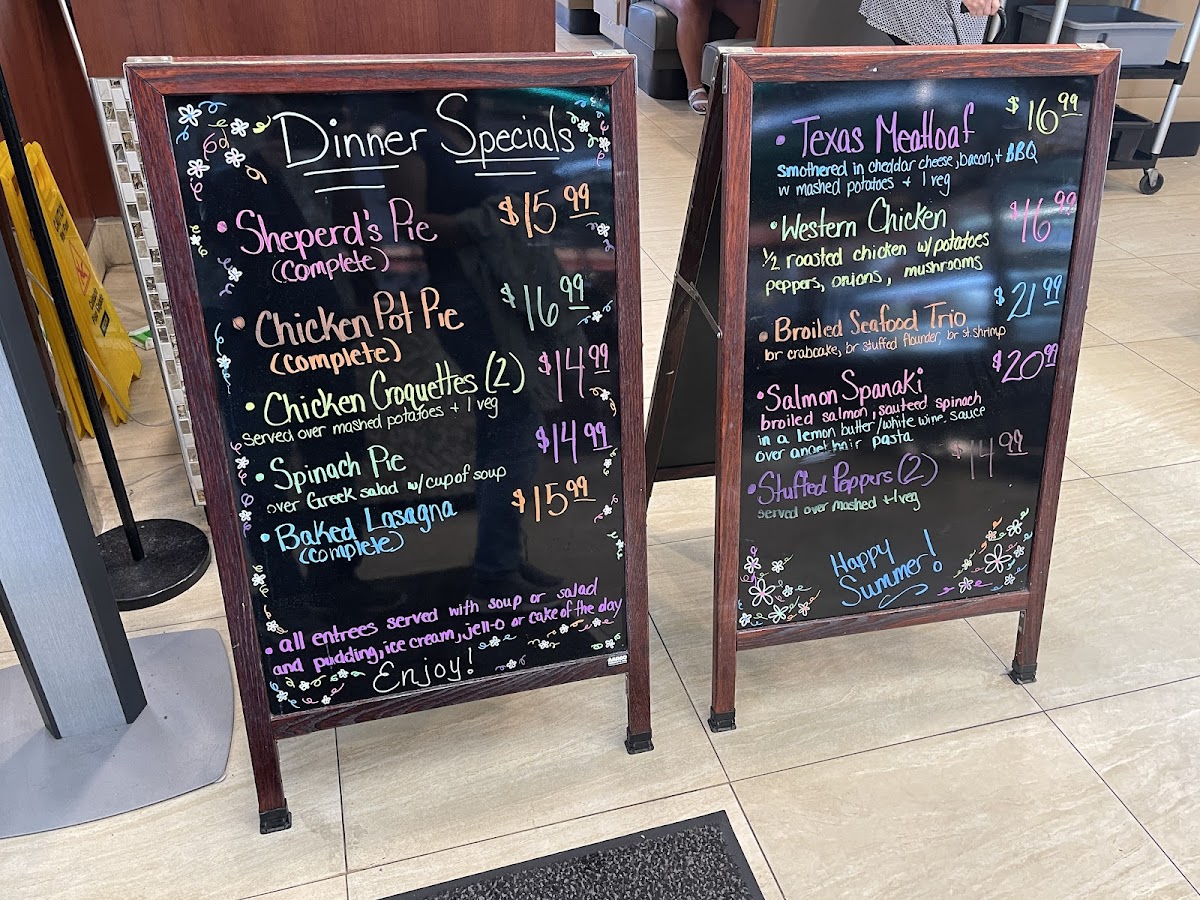 Dinner Specials
• Sheperd's Pie $15.99
(complete)
• Chicken Pot Pie $16.99
(complete)
• Chicken Croquettes (2) $14.99
served over mashed potatoes + 1 veg
• Spinach Pie $14.99
over Greek salad w/ cup of soup
• Baked Lasagna $15.99
(complete)
• all entrees served with soup or salad
and pudding, ice cream, jell-o or cake of the day
Enjoy!
• Texas Meatloaf $16.99
smothered in cheddar cheese, bacon, + BBQ
w mashed potatoes + 1 veg
• Western Chicken $16.99
1/2 roasted chicken w/potatoes
peppers, onions, mushrooms
• Broiled Seafood Trio $21.99
br crabcake, br stuffed flounder, br st. shrimp
• Salmon Spanaki $20.99
broiled salmon, sauteed spinach
in a lemon butter/white wine sauce
over angel hair pasta
• Stuffed Peppers (2) $14.99
served over mashed +1 veg
Happy
Summer!